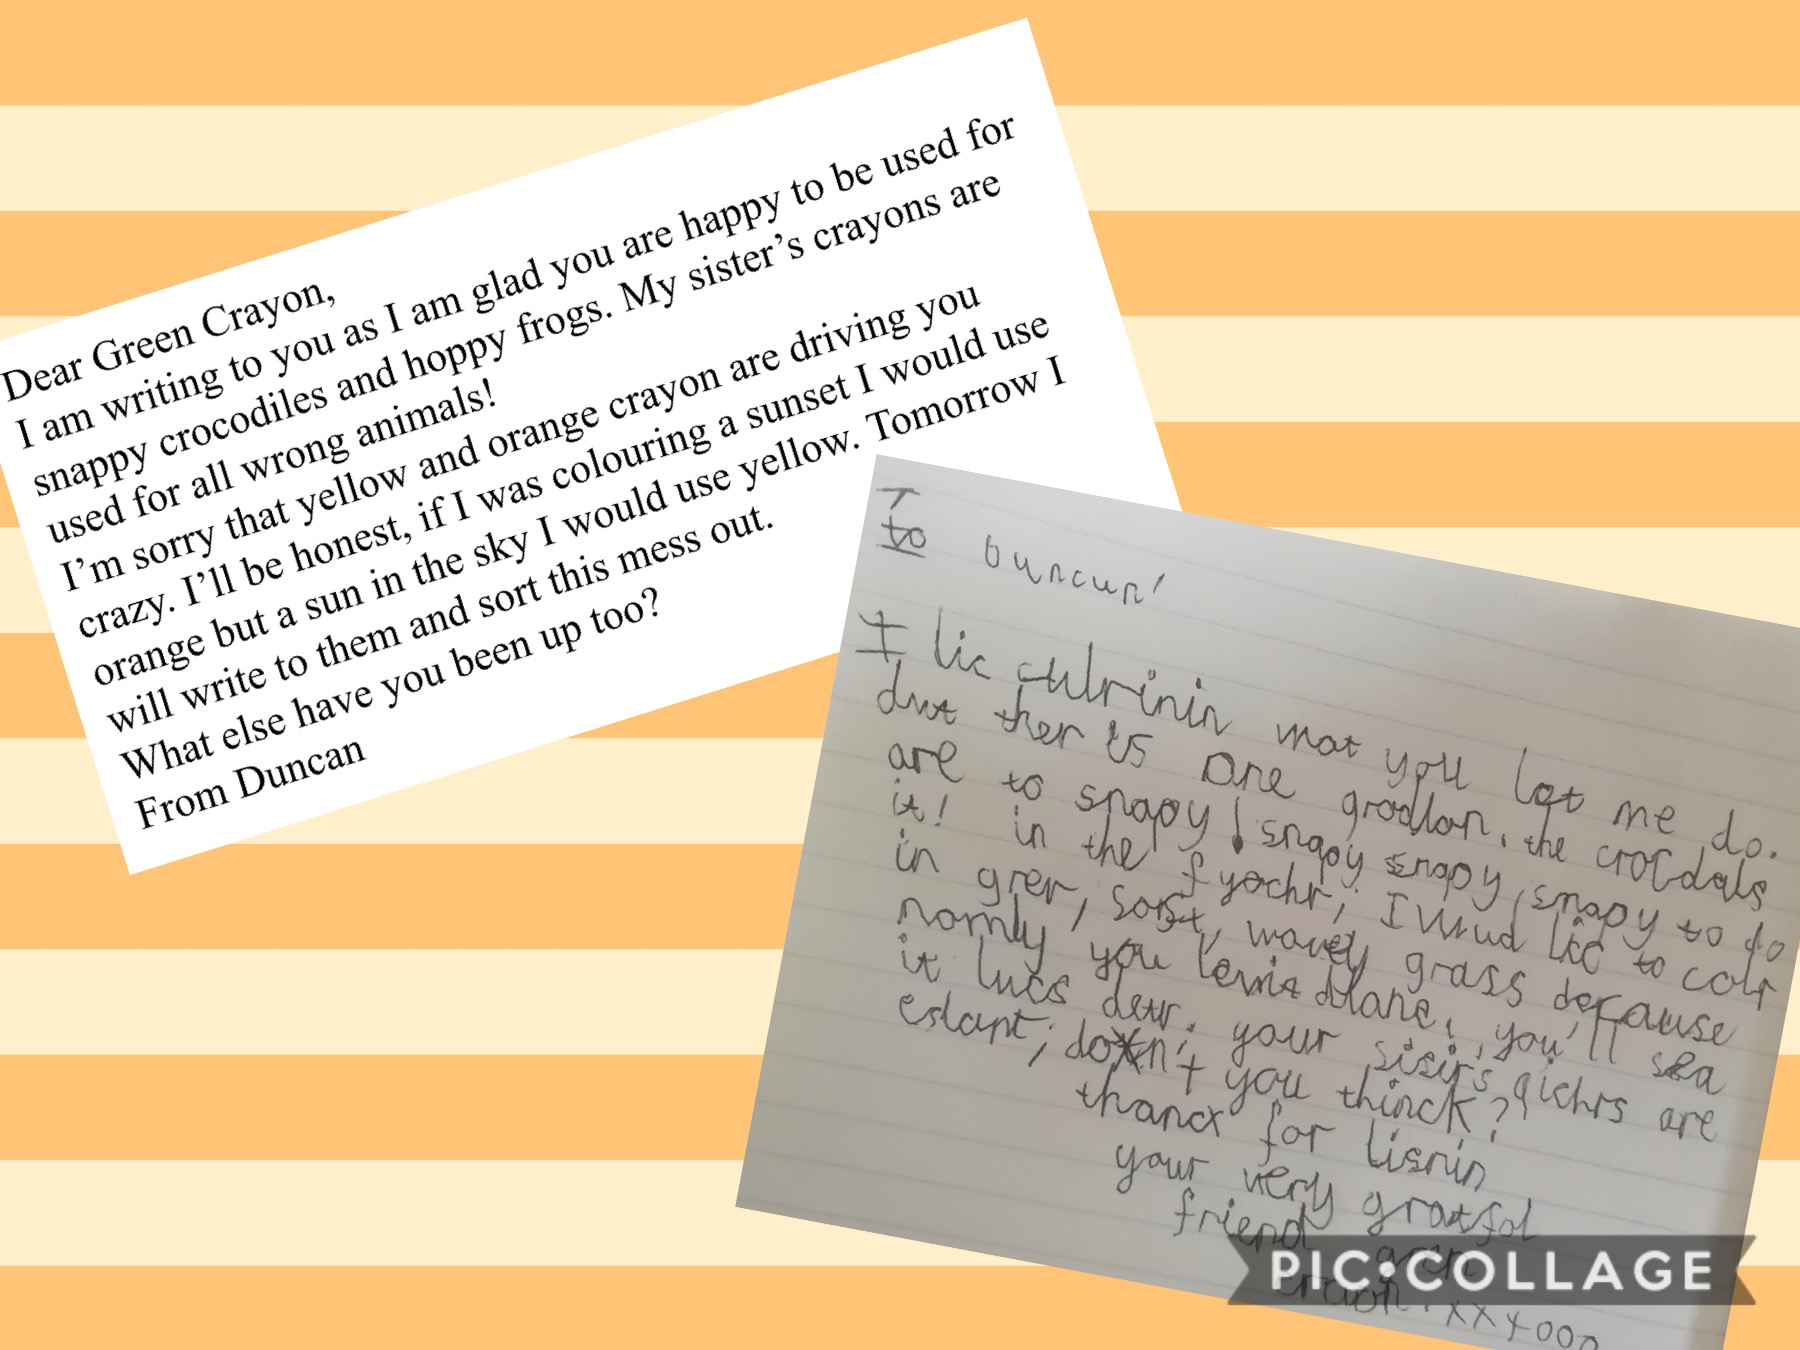 Dear Green Crayon,
I am writing to you as I am glad you are happy to be used for
snappy crocodiles and hoppy frogs. My sister’s crayons are
used for all wrong animals!
I’m sorry that yellow and orange crayon are driving you
crazy. I’ll be honest, if I was colouring a sunset I would use
orange but a sun in the sky I would use yellow. Tomorrow I
will write to them and sort this mess out.
What else have you been up too?
From Duncan
To
to Duncun'
I lic culrinin wot you let me do.
but ther is one grodlon. the crocdals
are to snapy! snapy snapy snapy to do
it! in the fyochr, I wud lic to colr
in grer, sost, wavey grass because
nornly you blane. you'll sea
it lucs detr. your sisir's qichrs are
eslant; don't you thinck?
thancx for lisnin
your very gratfol
friend gren
craon. xxxooo
PIC•COLLAGE